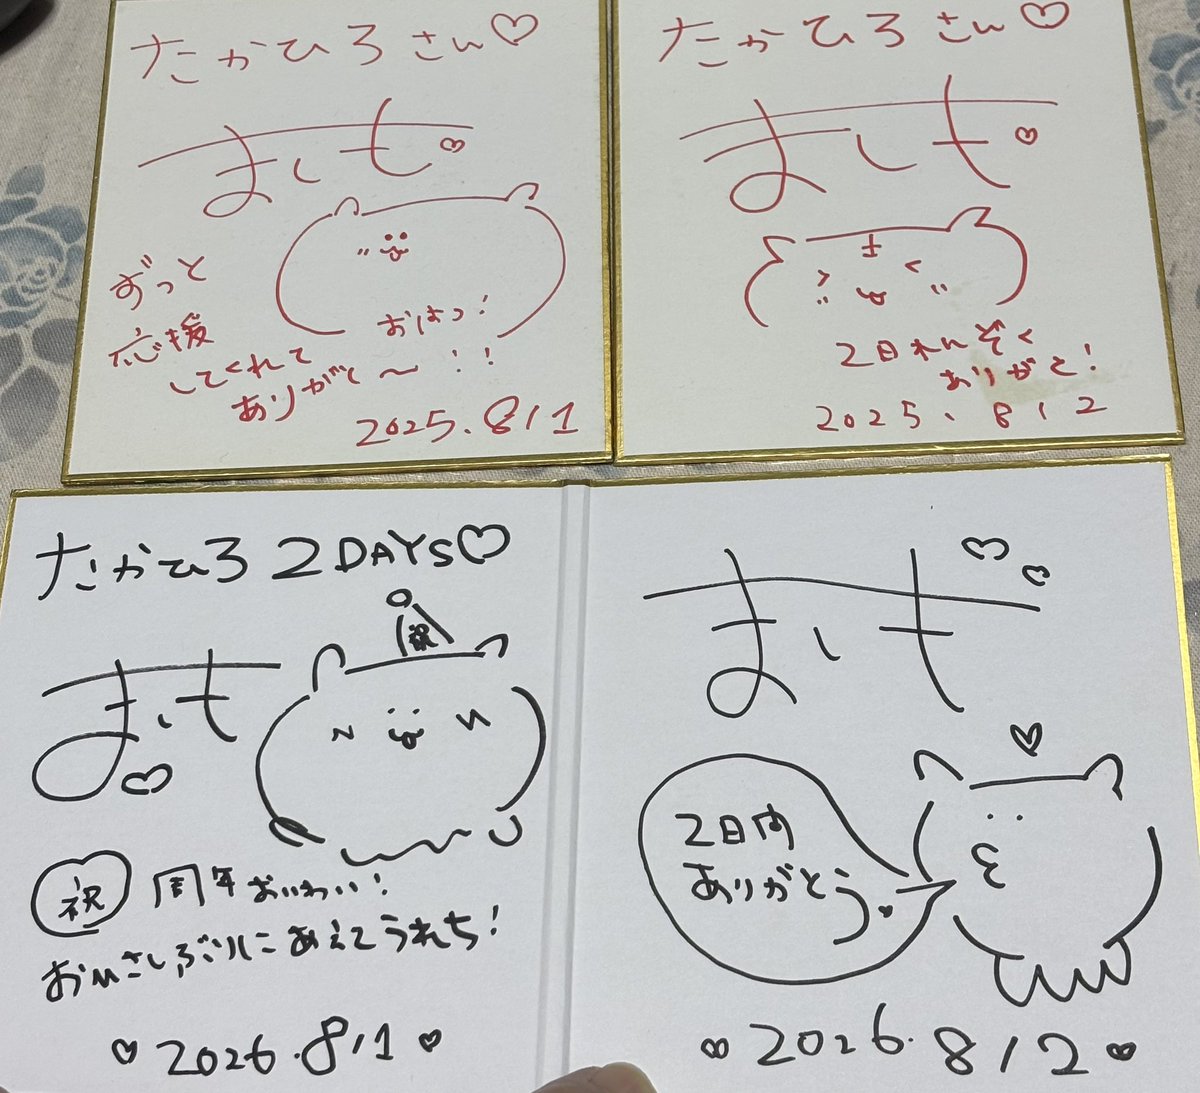 たかひろさん♡
ましも♡
ずっと
応援
してくれて
ありがと〜!!
おはつ!
2025.8/1
たかひろさん♡
ましも♡
2日れんぞく
ありがと!
2025.8/2
たかひろ 2DAYS♡
祝
ましも♡
祝 周年おいわい!
おひさしぶりにあえてうれち!
♡2026.8/1♡
ましも♡♡
2日間
ありがとう♡
♡2026.8/2♡